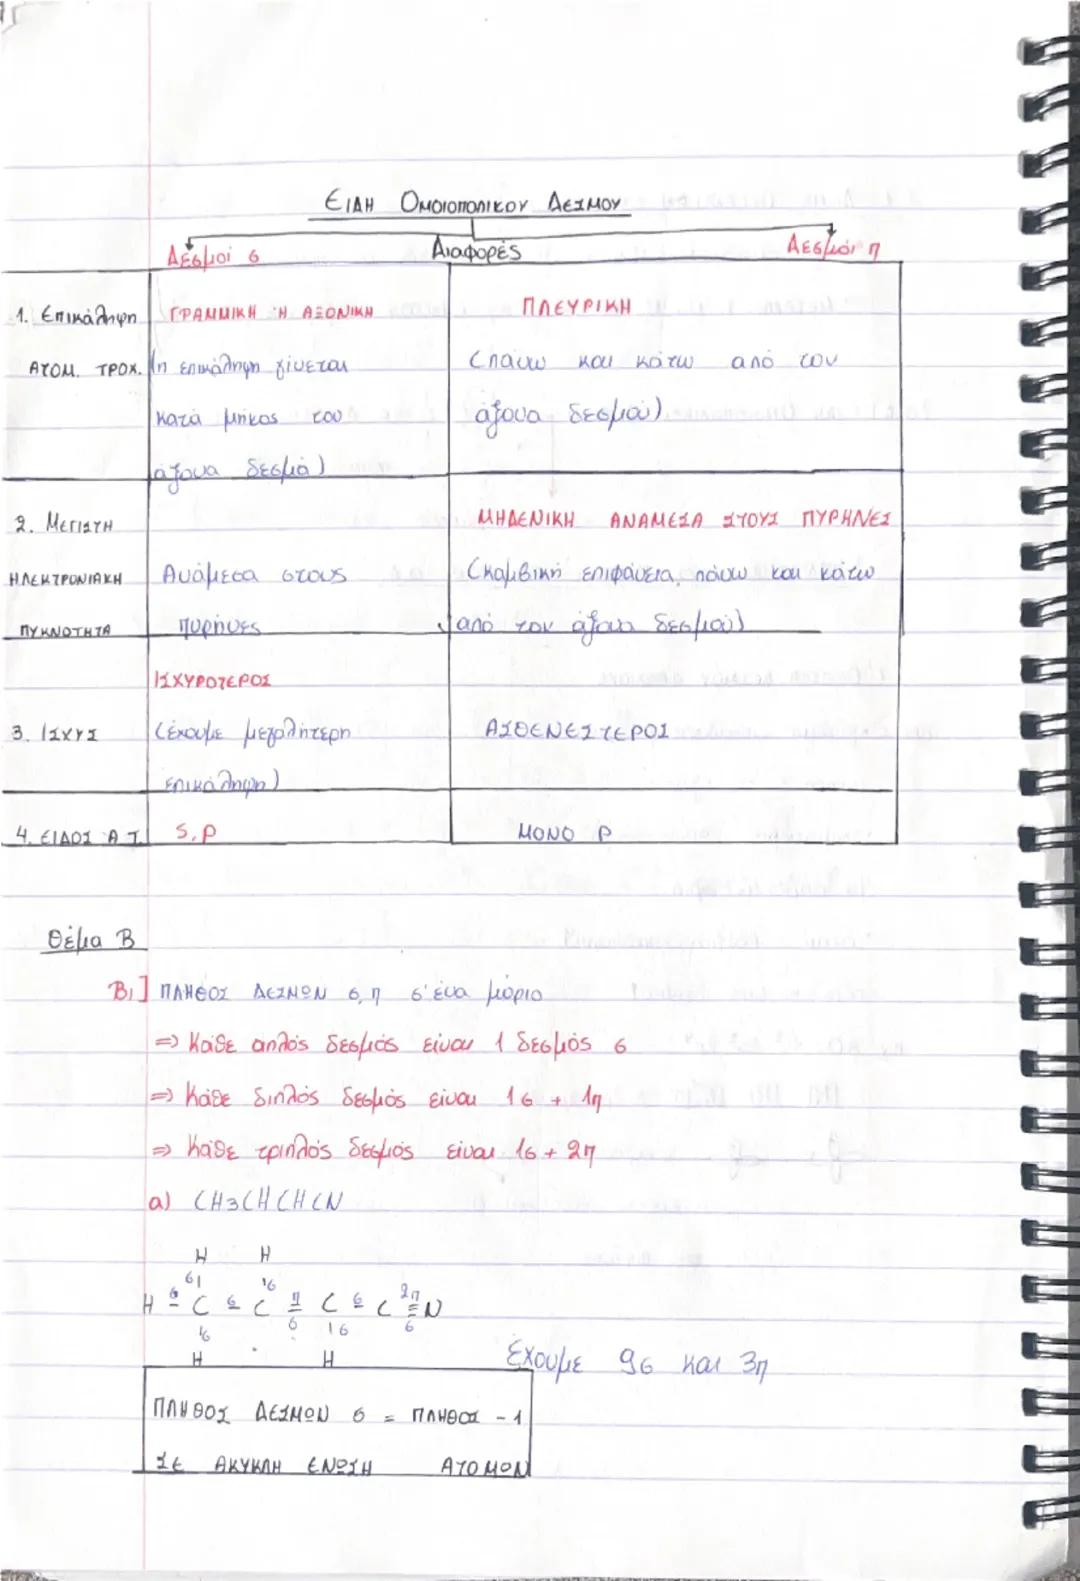 ΕΙΔΗ ΟΜΟΙΟΠΟΛΙΚΟΥ ΔΕΣΜΟΥ
Δεσμοί σ Διαφορές Δεσμοί π
1. Επικάλυψη ΑΤΟΜ. ΤΡΟΧ.
ΓΡΑΜΜΙΚΗ Ή ΑΞΟΝΙΚΗ
(η επικάλυψη γίνεται
κατά μήκος του
άξονα δεσμό)
ΠΛΕΥΡΙΚΗ
(πάνω και κάτω από τον
άξονα δεσμού)
2. ΜΕΓΙΣΤΗ
ΗΛΕΚΤΡΟΝΙΑΚΗ
ΠΥΚΝΟΤΗΤΑ
Ανάμεσα στους
πυρήνες
ΜΗΔΕΝΙΚΗ ΑΝΑΜΕΣΑ ΣΤΟΥΣ ΠΥΡΗΝΕΣ
(κομβική επιφάνεια, πάνω και κάτω
από τον άξονα δεσμού)
3. ΙΣΧΥΣ
ΙΣΧΥΡΟΤΕΡΟΣ
(έχουμε μεγαλύτερη
επικάλυψη)
ΑΣΘΕΝΕΣΤΕΡΟΣ
4. ΕΙΔΟΣ Α.Τ.
S, P
ΜΟΝΟ P
Θέμα Β
Β1] ΠΛΗΘΟΣ ΔΕΣΜΩΝ σ, π σ' ένα μόριο
⇒ Κάθε απλός δεσμός είναι 1 δεσμός σ
⇒ Κάθε διπλός δεσμός είναι 1σ + 1π
⇒ Κάθε τριπλός δεσμός είναι 1σ + 2π
α) CH3CHCHCN
H H
σ| |σ
H σ— C σ— C π= C σ— C 2π≡ N
|σ σ |σ σ
H H
Έχουμε 9σ και 3π
ΠΛΗΘΟΣ ΔΕΣΜΩΝ σ = ΠΛΗΘΟΣ - 1
ΣΕ ΑΚΥΚΛΗ ΕΝΩΣΗ ΑΤΟΜΩΝ